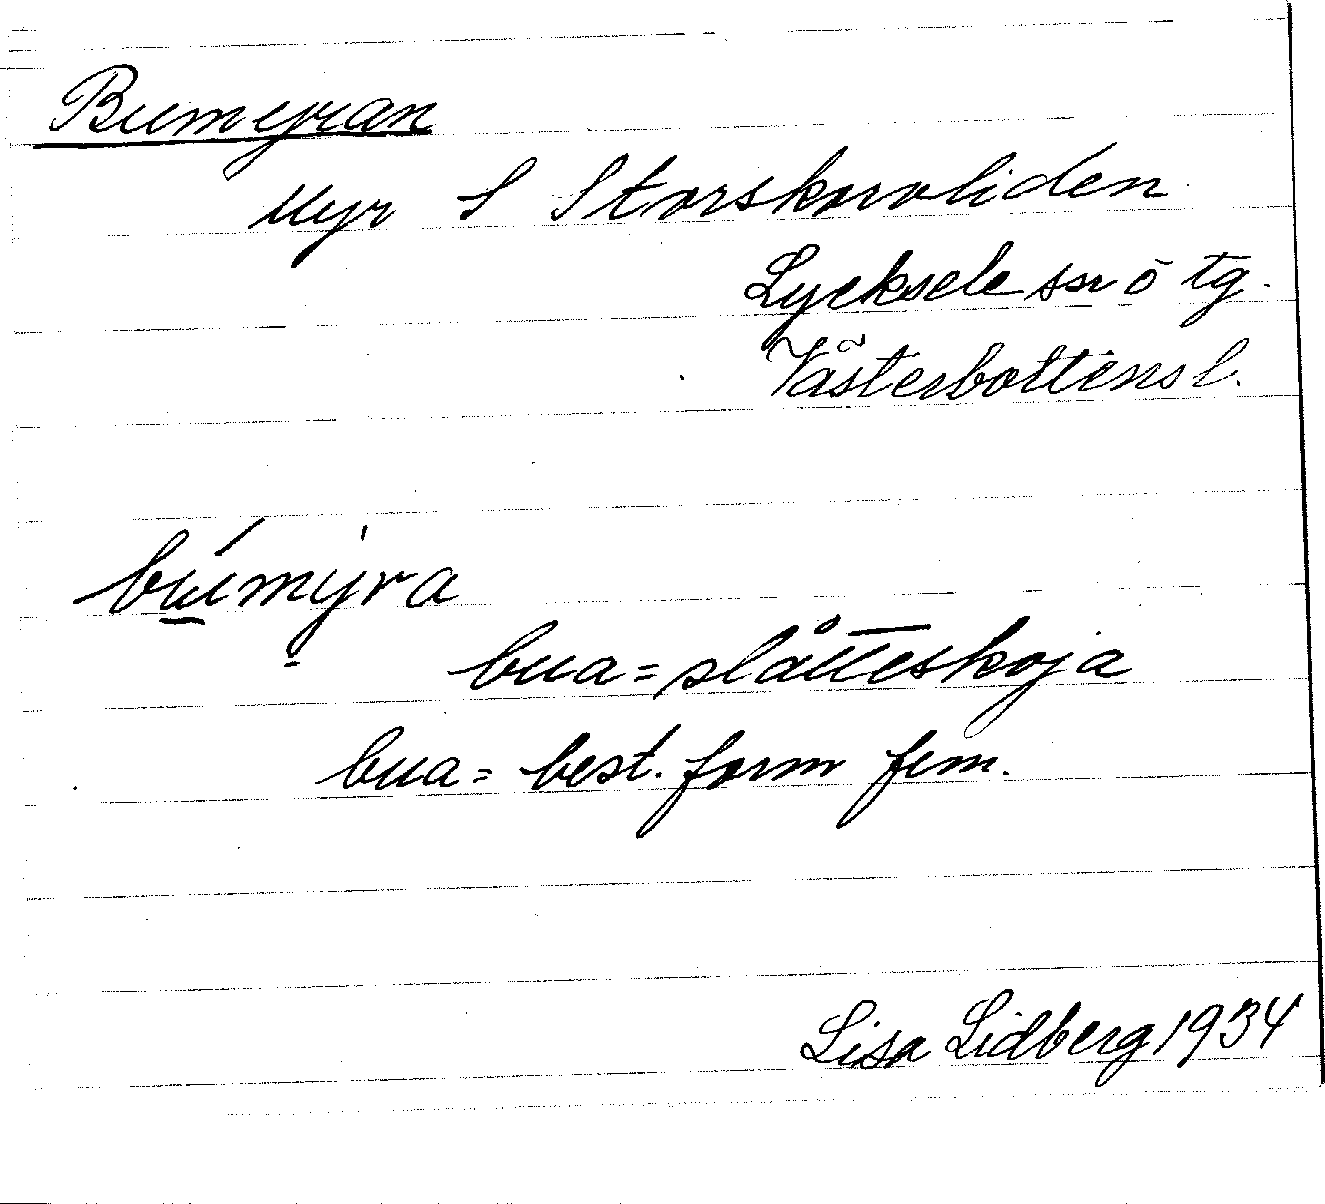 Bumyran
Myr S Storskarvliden
Lycksele sn o tg.
Västerbottens l.
búmýra
bua = slåtteskoja
bua = best. form fem.
Lisa Lidberg 1934